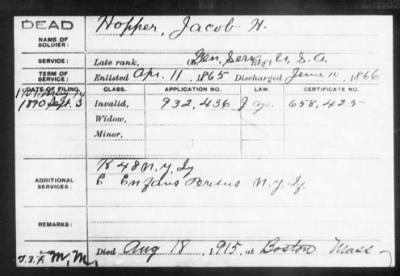 DEAD
NAME OF SOLDIER: Hopper, Jacob H.
SERVICE: Late rank, Gen. Serv. U.S.A.
TERM OF SERVICE: Enlisted Apr. 11, 1865 Discharged June 10, 1866
DATE OF FILING. CLASS. APPLICATION NO. LAW. CERTIFICATE NO.
1890 Sept. 3 Invalid, 932,436 658,425
Widow,
Minor,
ADDITIONAL SERVICES: K 48 N.Y. Iy
E N.Y. Iy.
REMARKS:
Died Aug 18, 1915, at Boston Mass